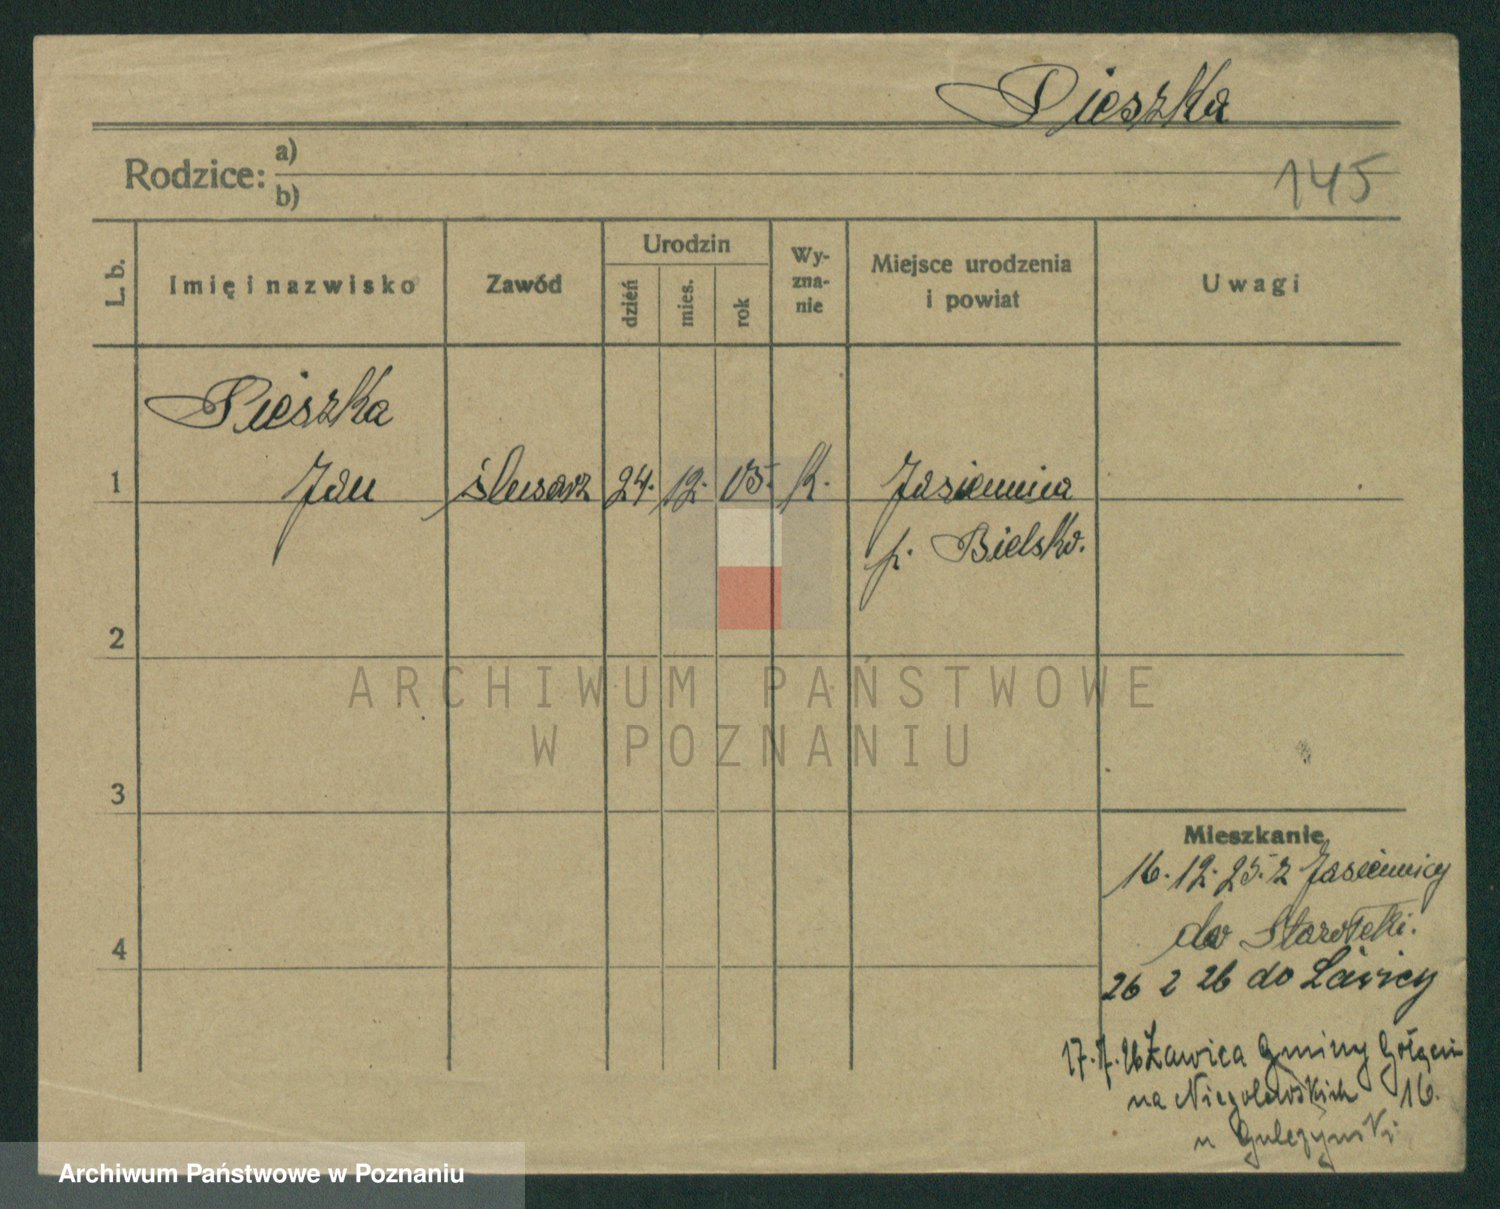 Pieszka
Rodzice: a)
b)
145
L. b.
Imię i nazwisko
Zawód
Urodzin
dzień
mies.
rok
Wy-
zna-
nie
Miejsce urodzenia
i powiat
Uwagi
Pieszka
1 Jan ślusarz 24. 12. 05. k. Jasiennica
p. Bielsko.
2
ARCHIWUM PAŃSTWOWE
W POZNANIU
3
Mieszkanie
16. 12. 25. z Jasiennicy
do Starołęki.
4
26 2 26 do Ławicy
17. 7. 26 Ławica gminy Gołęcin
na Niegolewskich 16.
u Gulczyński
Archiwum Państwowe w Poznaniu